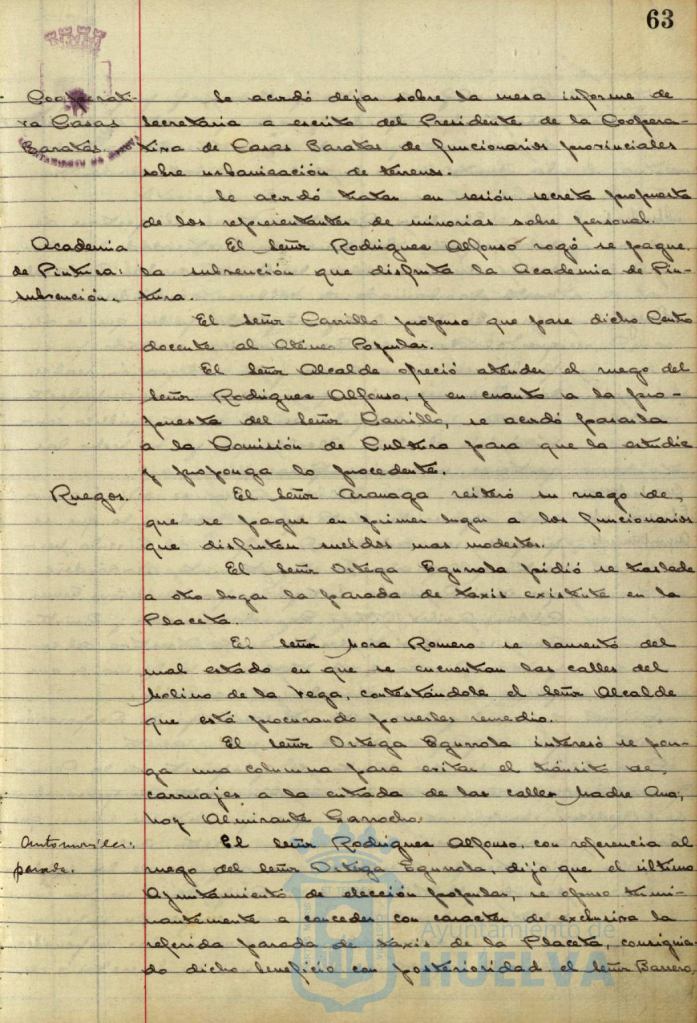 63
Cooperati-
va Casas
Baratas.
Se acordó dejar sobre la mesa informe de
Secretaria a escrito del Presidente de la Coopera-
tiva de Casas Baratas de funcionarios provinciales
sobre urbanización de terrenos.
Se acordó tratar en sesión secreta propuesta
de los representantes de minorias sobre personal.
Academia
de Pintura:
subvención.
El Señor Rodriguez Alfonso rogó se pague
la subvención que disfruta la Academia de Pin-
tura.
El Señor Carrillo propuso que pase dicho Centro
docente al Ateneo Popular.
El Señor Alcalde ofreció atender el ruego del
Señor Rodriguez Alfonso, y en cuanto a la pro-
puesta del Señor Carrillo, se acordó pasarla
a la Comisión de Cultura para que la estudie
y proponga lo procedente.
Ruegos.
El Señor Aranaga reiteró su ruego de
que se pague en primer lugar a los funcionarios
que disfruten sueldos mas modestos.
El Señor Ortega Egurrola pidió se traslade
a otro lugar la parada de taxis existente en la
Placeta.
El Señor Mora Romero se lamentó del
mal estado en que se encuentran las calles del
Molino de la Vega, contestándole el Señor Alcalde
que está procurando ponerles remedio.
El Señor Ortega Egurrola interesó se pon-
ga una columna para evitar el tránsito de
carruajes a la entrada de las calles Madre Ana,
hoy Almirante Garrocho.
Automoviles:
parada.
El Señor Rodriguez Alfonso, con referencia al
ruego del Señor Ortega Egurrola, dijo que el último
Ayuntamiento de elección popular, se opuso termi-
nantemente a conceder con caracter de exclusiva la
referida parada de taxis de la Placeta, consiguien-
do dicho beneficio con posterioridad el Señor Barrero,
Ayuntamiento de
HUELVA